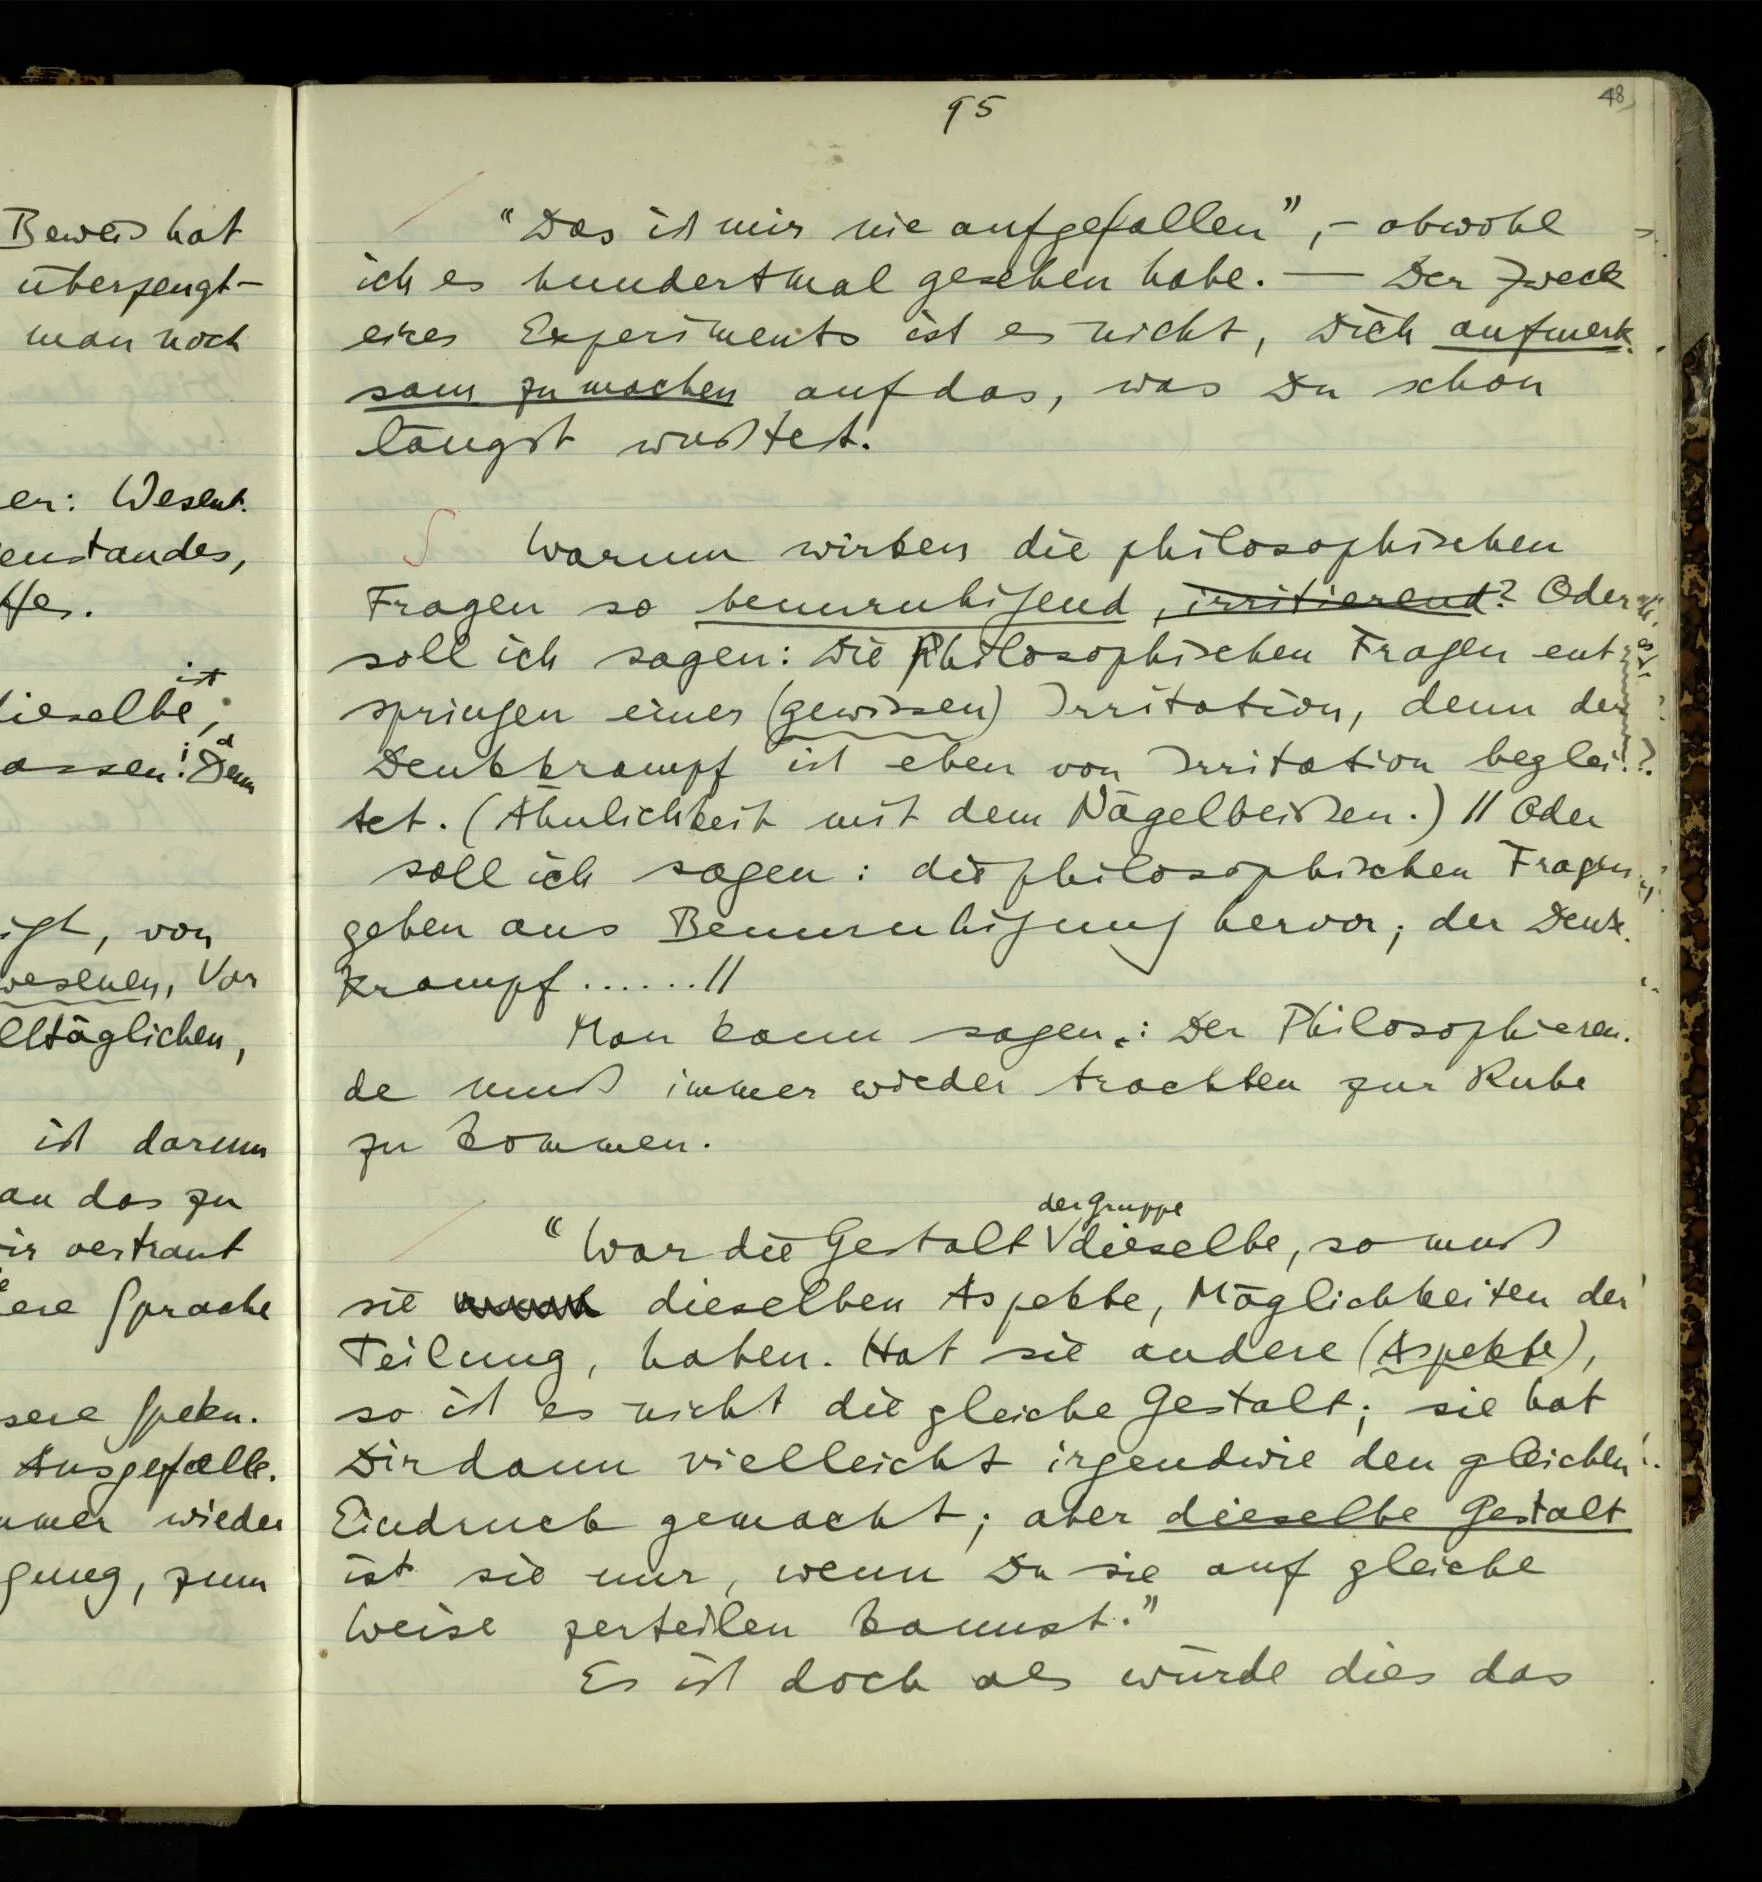 Beweis hat
überzeugt –
man noch
er: Wesent-
enstandes,
ist
dieselbe;
d
assen: Denn
igt, von
wesenen, Vor
lltäglichen,
ist darum
an das zu
ir vertraut
ere Sprache
sere Speku-
Ausgefalle-
mmer wieder
gung, zum
95
48
“Das ist mir nie aufgefallen”, – obwohl
ich es hundertmal gesehen habe. — Der Zweck
eines Experiments ist es nicht, Dich aufmerk-
sam zu machen auf das, was Du schon
längst wußtest.
S Warum wirken die philosophischen
Fragen so beunruhigend, irritierend? Oder
soll ich sagen: Die Philosophischen Fragen ent-
springen einer (gewissen) Irritation, denn der
Denkkrampf ist eben von Irritation beglei-
tet. (Ähnlichkeit mit dem Nägelbeißen.) // Oder
soll ich sagen: die philosophischen Fragen
gehen aus Beunruhigung hervor; der Denk-
krampf ......//
Man kann sagen: Der Philosophieren-
de muß immer wieder trachten zur Ruhe
zu kommen.
der Gruppe
“War die Gestalt dieselbe, so muß
sie dieselben Aspekte, Möglichkeiten der
Teilung, haben. Hat sie andere (Aspekte),
so ist es nicht die gleiche Gestalt; sie hat
Dir dann vielleicht irgendwie den gleichen
Eindruck gemacht; aber dieselbe Gestalt
ist sie nur, wenn Du sie auf gleiche
Weise zerteilen kannst.”
Es ist doch als würde dies das